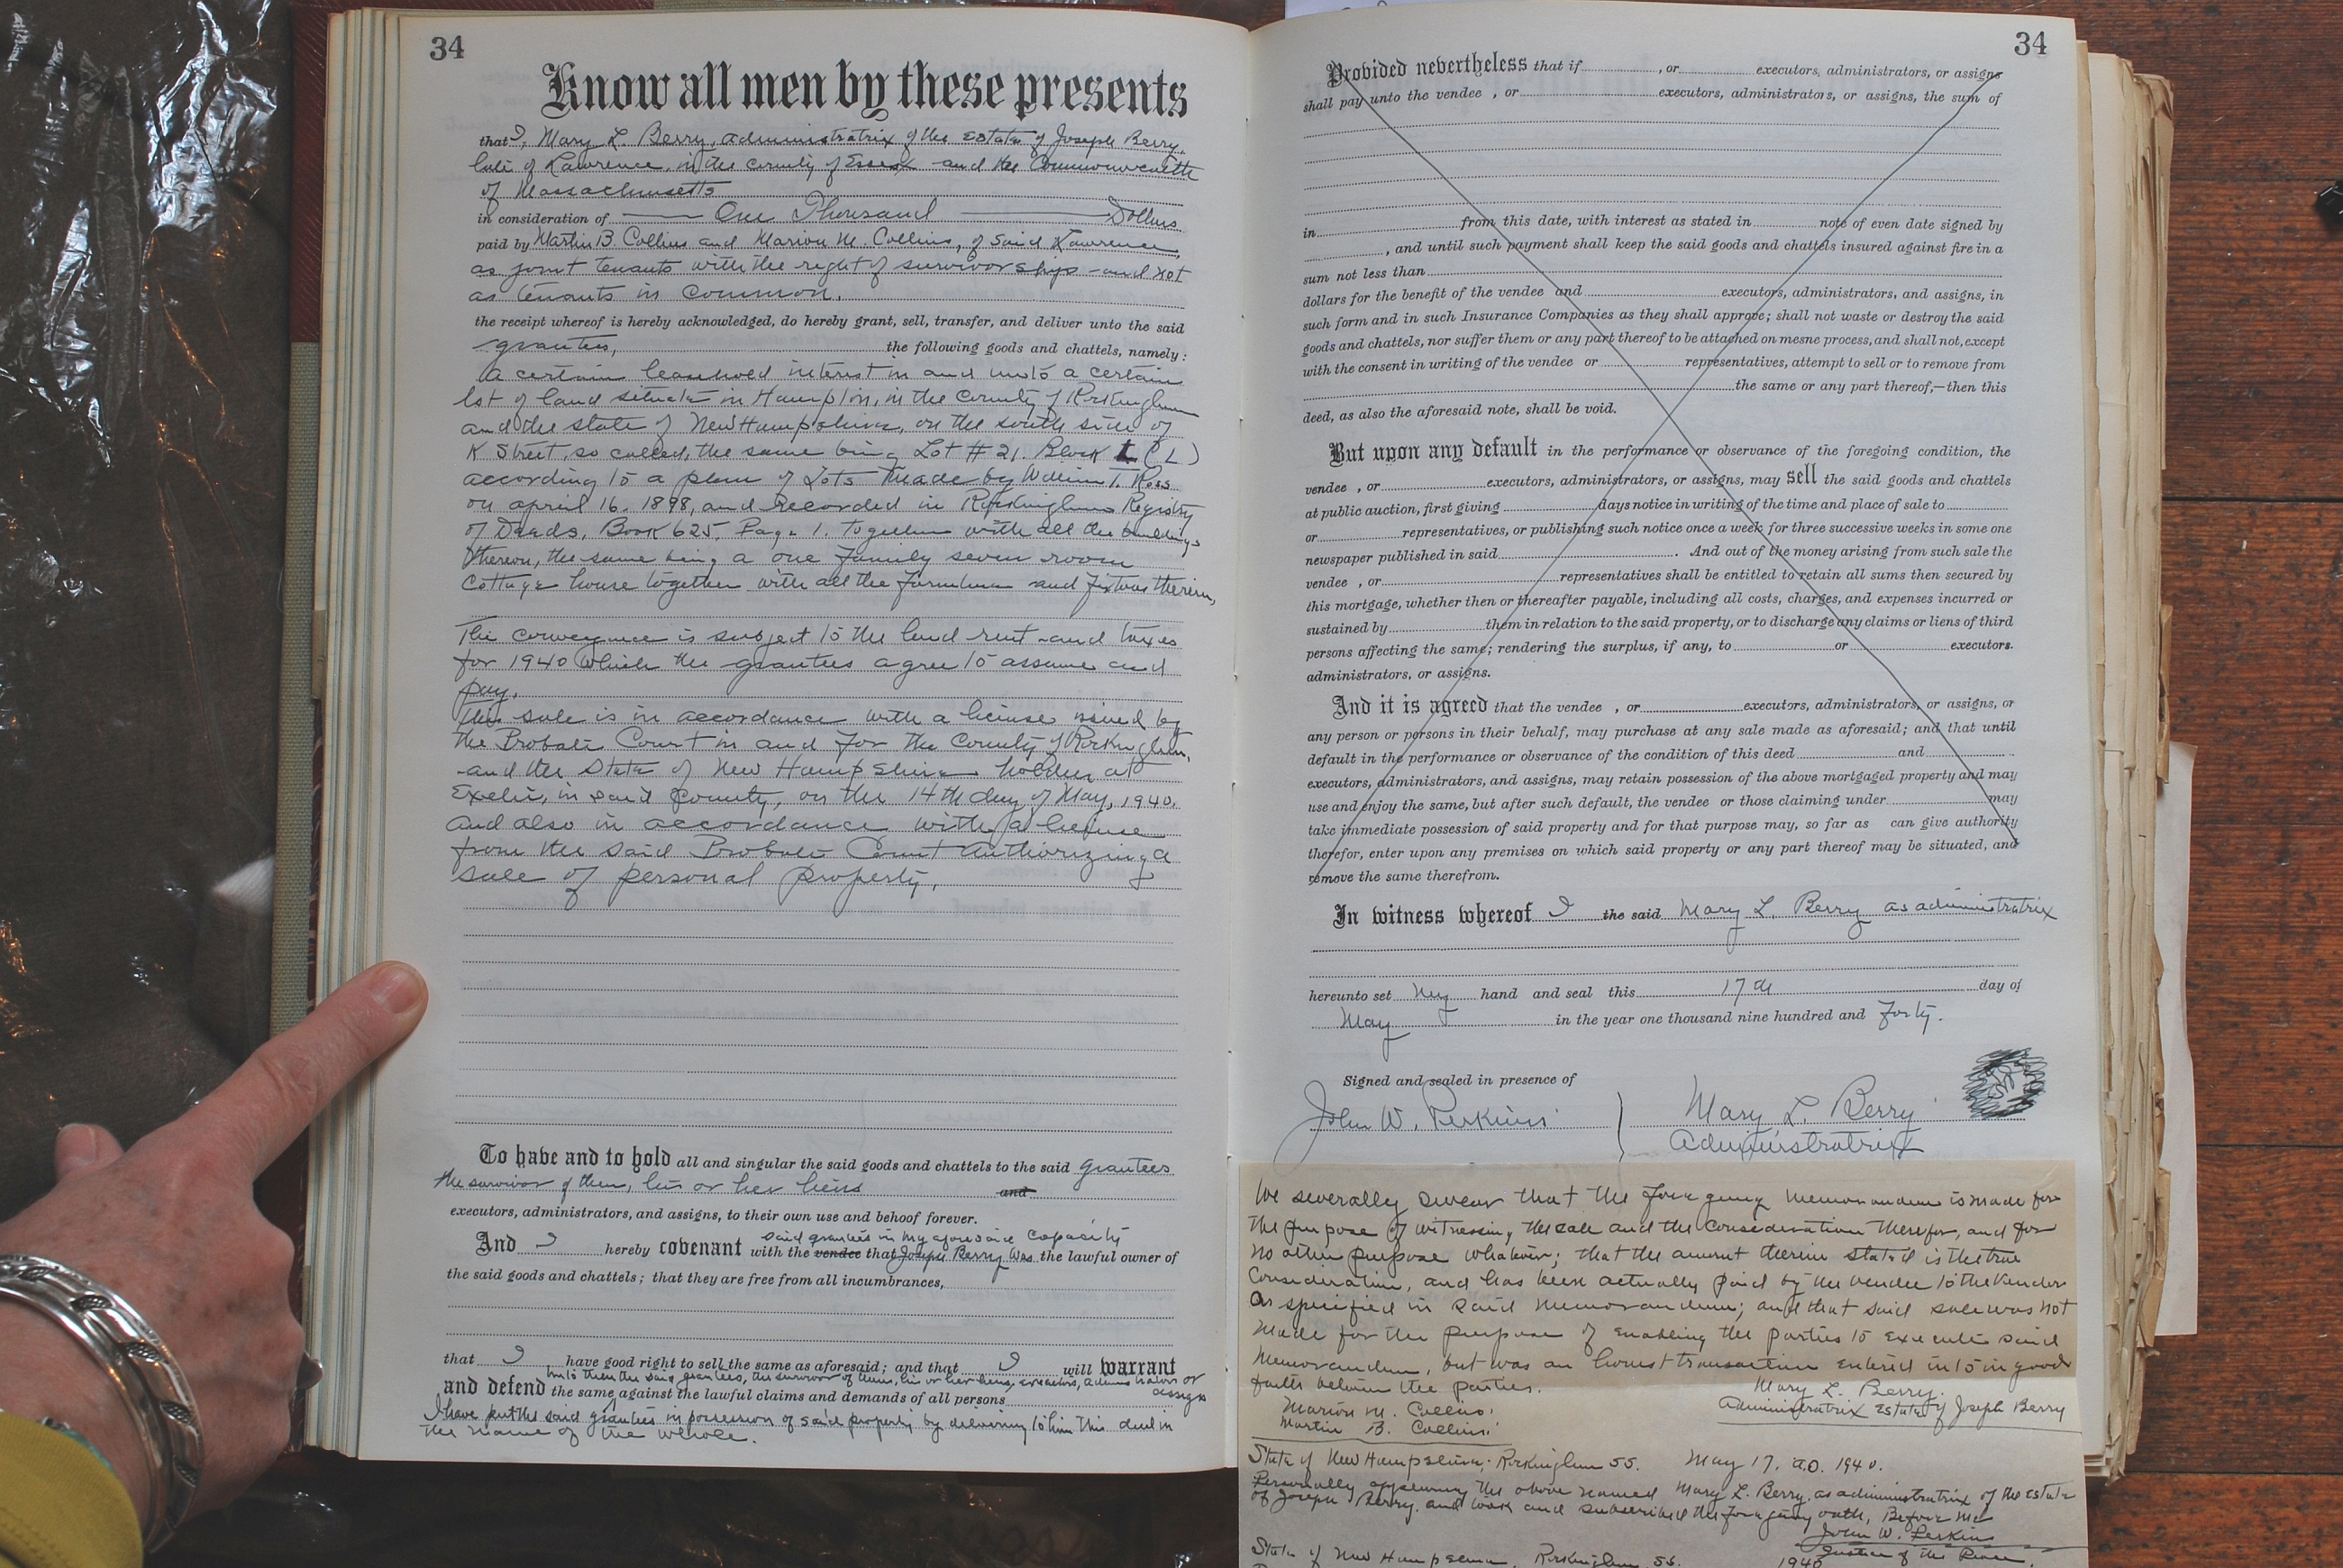 34
Know all men by these presents
that I, Mary L. Berry, administratrix of the Estate of Joseph Berry,
late of Lawrence, in the county of Essex and the Commonwealth
of Massachusetts
in consideration of One Thousand Dollars
paid by Martin B. Collins and Marion M. Collins, of said Lawrence,
as joint tenants with the right of survivorship and not
as tenants in common.
the receipt whereof is hereby acknowledged, do hereby grant, sell, transfer, and deliver unto the said
grantees, the following goods and chattels, namely:
a certain leasehold interest in and unto a certain
lot of land situate in Hampton, in the County of Rockingham
and the state of New Hampshire, on the south side of
K Street, so called, the same being Lot # 21. Block L (L)
according to a plan of Lots made by William T. Ross
on april 16. 1898, and recorded in Rockingham Registry
of Deeds, Book 625, Page 1. Together with all the buildings
thereon, the same being a one family seven room
Cottage house together with all the furniture and fixtures therein,
The conveyance is subject to the land rent and taxes
for 1940 which the grantees agree to assume and
pay.
This sale is in accordance with a license issued by
the Probate Court in and for the County of Rockingham,
and the State of New Hampshire holden at
Exeter, in said County, on the 14th day of May, 1940.
And also in accordance with a license
from the said Probate Court authorizing a
sale of personal property.
To have and to hold all and singular the said goods and chattels to the said grantees
the survivor of them, his or her heirs and
executors, administrators, and assigns, to their own use and behoof forever.
said grantees in my aforesaid capacity
And I hereby covenant with the vendee that Joseph Berry was the lawful owner of
the said goods and chattels; that they are free from all incumbrances,
that I have good right to sell the same as aforesaid; and that I will warrant
unto them the said grantees, the survivor of them, his or her heirs, executors, administrators or
assigns
and defend the same against the lawful claims and demands of all persons
I have put the said grantees in possession of said property by delivering to him this deed in
the name of the whole.
34
Provided nevertheless that if , or executors, administrators, or assigns
shall pay unto the vendee , or executors, administrators, or assigns, the sum of
in from this date, with interest as stated in note of even date signed by
, and until such payment shall keep the said goods and chattels insured against fire in a
sum not less than
dollars for the benefit of the vendee and executors, administrators, and assigns, in
such form and in such Insurance Companies as they shall approve; shall not waste or destroy the said
goods and chattels, nor suffer them or any part thereof to be attached on mesne process, and shall not, except
with the consent in writing of the vendee or representatives, attempt to sell or to remove from
the same or any part thereof,—then this
deed, as also the aforesaid note, shall be void.
But upon any default in the performance or observance of the foregoing condition, the
vendee , or executors, administrators, or assigns, may sell the said goods and chattels
at public auction, first giving days notice in writing of the time and place of sale to
or representatives, or publishing such notice once a week for three successive weeks in some one
newspaper published in said . And out of the money arising from such sale the
vendee , or representatives shall be entitled to retain all sums then secured by
this mortgage, whether then or thereafter payable, including all costs, charges, and expenses incurred or
sustained by them in relation to the said property, or to discharge any claims or liens of third
persons affecting the same; rendering the surplus, if any, to or executors.
administrators, or assigns.
And it is agreed that the vendee , or executors, administrators, or assigns, or
any person or persons in their behalf, may purchase at any sale made as aforesaid; and that until
default in the performance or observance of the condition of this deed and .
executors, administrators, and assigns, may retain possession of the above mortgaged property and may
use and enjoy the same, but after such default, the vendee or those claiming under may
take immediate possession of said property and for that purpose may, so far as can give authority
therefor, enter upon any premises on which said property or any part thereof may be situated, and
remove the same therefrom.
In witness whereof I the said Mary L. Berry as administratrix
hereunto set my hand and seal this 17th day of
May in the year one thousand nine hundred and Forty.
Signed and sealed in presence of
John W. Perkins Mary L. Berry
Administratrix
We severally swear that the foregoing memorandum is made for
the purpose of witnessing the sale and the consideration therefor, and for
no other purpose whatever; that the amount therein stated is the true
consideration, and has been actually paid by the vendee to the vendor
as specified in said memorandum; and that said sale was not
made for the purpose of enabling the parties to execute said
memorandum, but was an honest transaction entered into in good
faith between the parties.
Mary L. Berry.
Marion M. Collins. Administratrix Estate of Joseph Berry
Martin B. Collins.
State of New Hampshire. Rockingham SS. May 17. A.D. 1940.
Personally appearing the above named Mary L. Berry, as administratrix of the Estate
of Joseph Berry. and took and subscribed the foregoing oath, Before me
John W. Perkins
Justice of the Peace.
State of New Hampshire, Rockingham SS. 1940